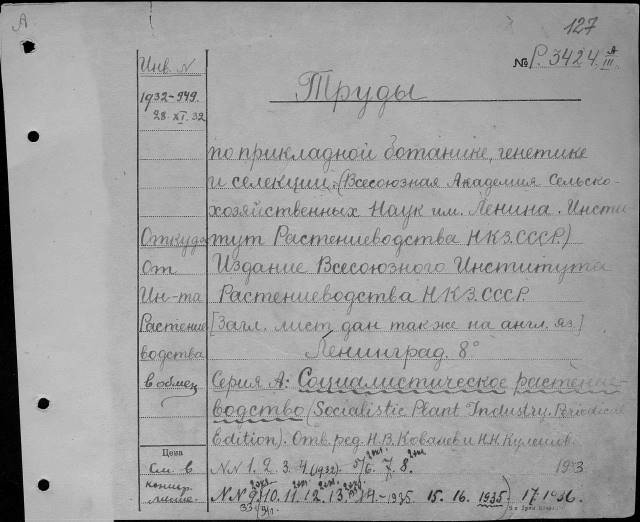 А
127
№ Р. 3424 A/III
Инв. N
1932-949.
28. XI. 32
Труды
по прикладной ботанике, генетике
и селекции. (Всесоюзная Академия Сельско-
хозяйственных Наук им. Ленина. Инсти
Откуда
тут Растениеводства НКЗ.СССР.)
От
Издание Всесоюзного Института
Ин-та
Растениеводства НКЗ.СССР.
Растение
[Загл. лист дан также на англ. яз.]
водства
Ленинград. 8°
в обмен
Серия А: Социалистическое растение-
водство (Socialistic Plant Industry. Periodical
Edition). Отв. ред. Н.В. Ковалев и Н.Н. Кулешов.
Цена
См. в
NN 1. 2. 3. 4 (1932). 5/6. 7. 8. 1933
NN 9. 10. 11. 12. 13. 14 - 1935 15. 16. 1935) 17. 1936.